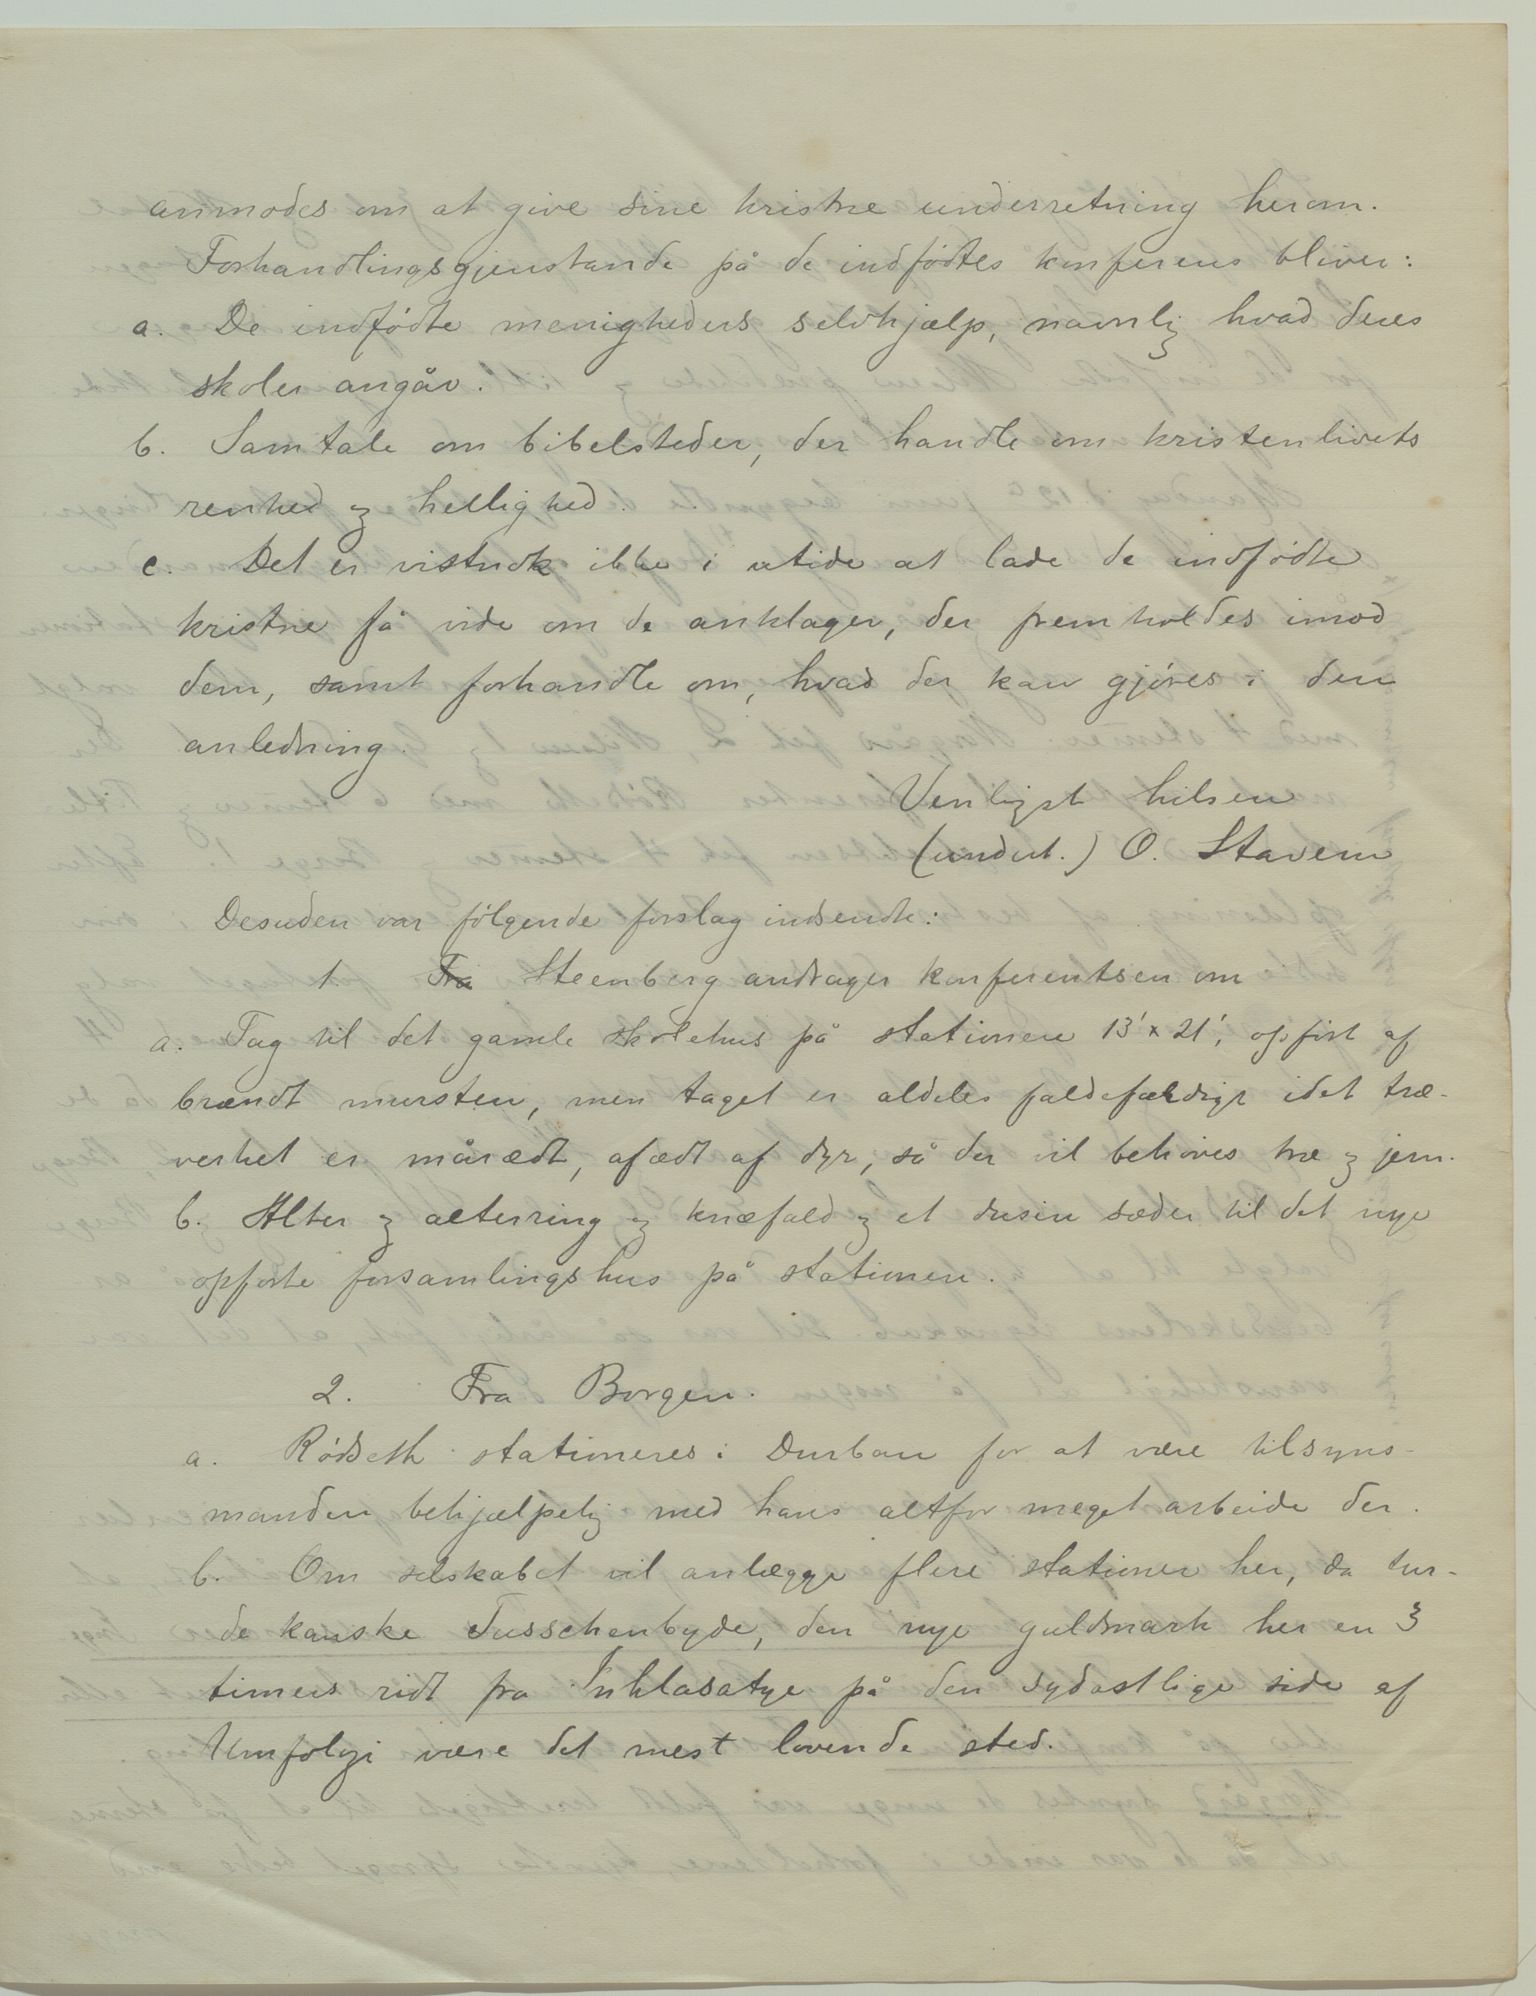 anmodes om at give sine kristne underretning herom.
Forhandlingsgjenstande på de indfødtes konferens bliver:
a. De indfødte menigheders selvhjælp, navnlig hvad deres
skoler angår.
b. Samtale om bibelsteder, der handle om kristenlivets
renhed og hellighed.
c. Det er vistnok ikke i utide at lade de indfødte
kristne få vide om de anklager, der fremholdes imod
dem, samt forhandle om, hvad der kan gjøres i den
anledning.
Venligst hilsen
(undert.) O. Stavem
Desuden var følgende forslag indsendte:
1. Fra Steenberg andrager konferentsen om
a. Tag til det gamle skolehus på stationen 13' x 21', opført af
brændt mursten, men taget er aldeles faldefærdigt idet træ-
verket er mårædt, afædt af dyr, så der vil behøves træ og jern.
b. Alter og alterring og knæfald og et dusin sæder til det nye
opførte forsamlingshus på stationen.
2. Fra Borgen.
a. Rødseth stationeres i Durban for at være tilsyns-
manden behjælpelig med hans altfor meget arbeide der.
b. Om selskabet vil anlægge flere stationer her, da tur-
de kanske Tusschenbyde, den nye guldmark her en 3
timers ridt fra Inhlasatye på den sydøstlige side af
Umfolozi være det mest lovende sted.